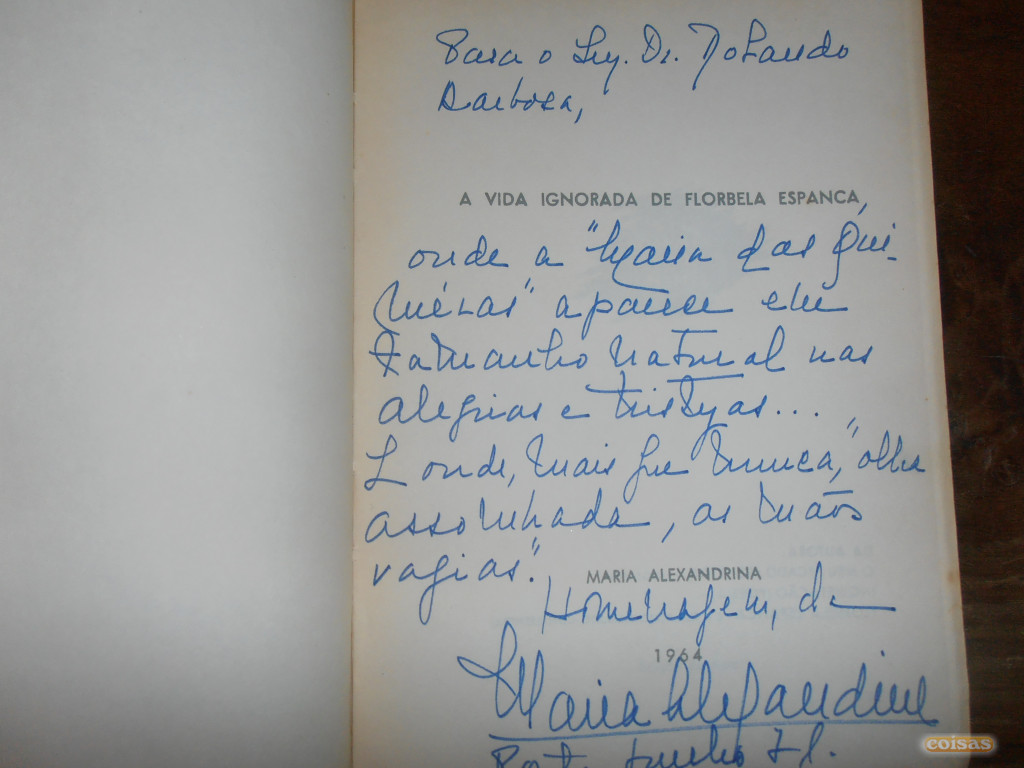 Para o Eng. Dr. Rolando
Barbosa,
A VIDA IGNORADA DE FLORBELA ESPANCA,
onde a "Maria das Qui-
méras" aparece em
tamanho natural nas
alegrias e tristezas...
E onde, mais que nunca, "olha
assombrada, as mãos
vazias."
MARIA ALEXANDRINA
Homenagem, de
1964
Maria Alexandrina
Junho
coisas